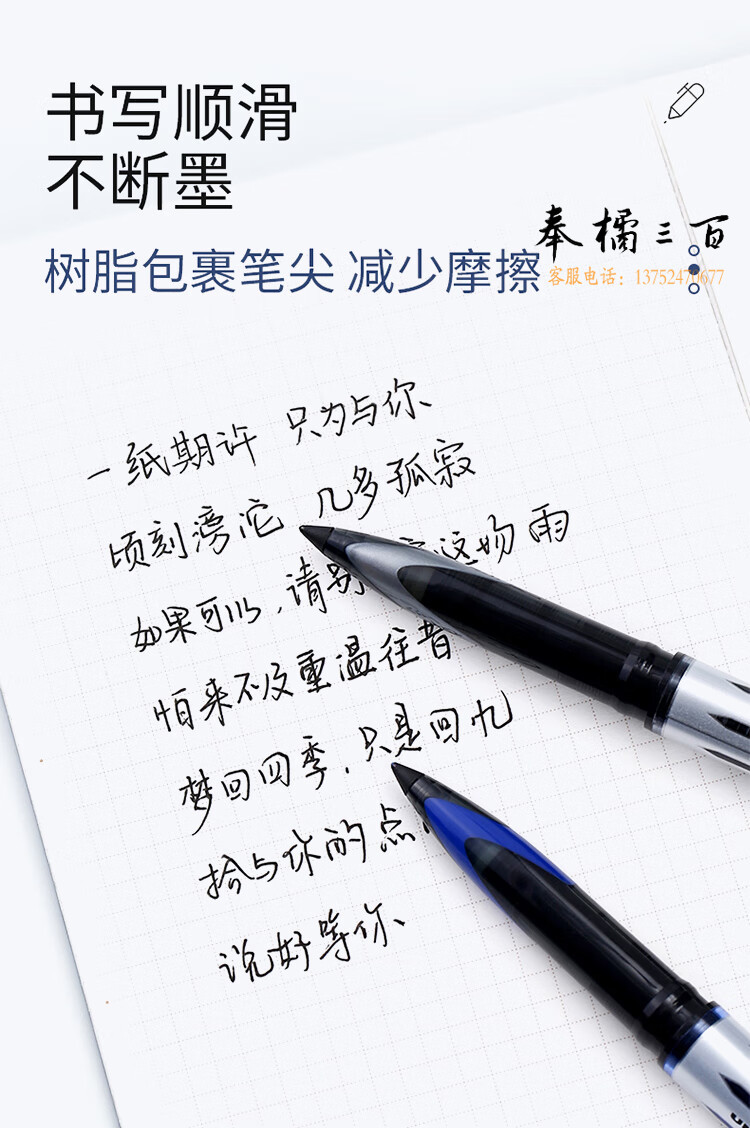 书写顺滑
不断墨
奉橘三百
树脂包裹笔尖 减少摩擦
客服电话：13752470677
一纸期许 只为与你
顷刻滂沱 几多孤寂
如果可以，请别 这场雨
怕来不及重温往昔
梦回四季，只是回忆
拾与你的点
说好等你